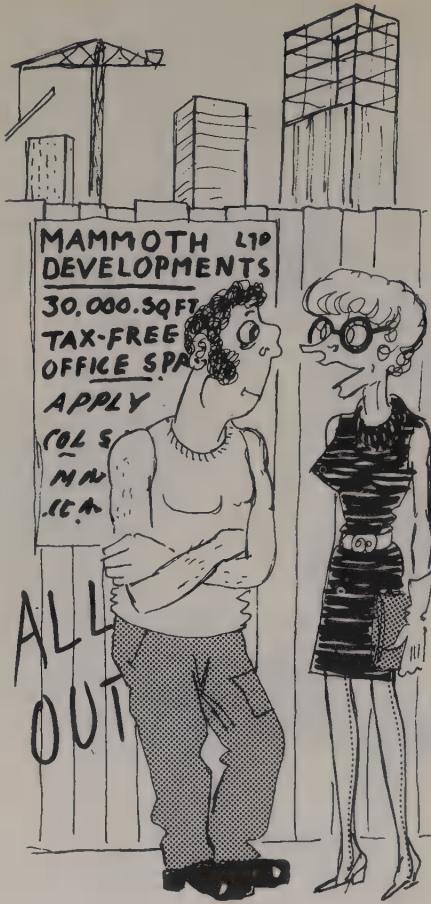 MAMMOTH LTD
DEVELOPMENTS
30,000.SQFT
TAX-FREE
OFFICE
APPLY
COL
ALL
OUT